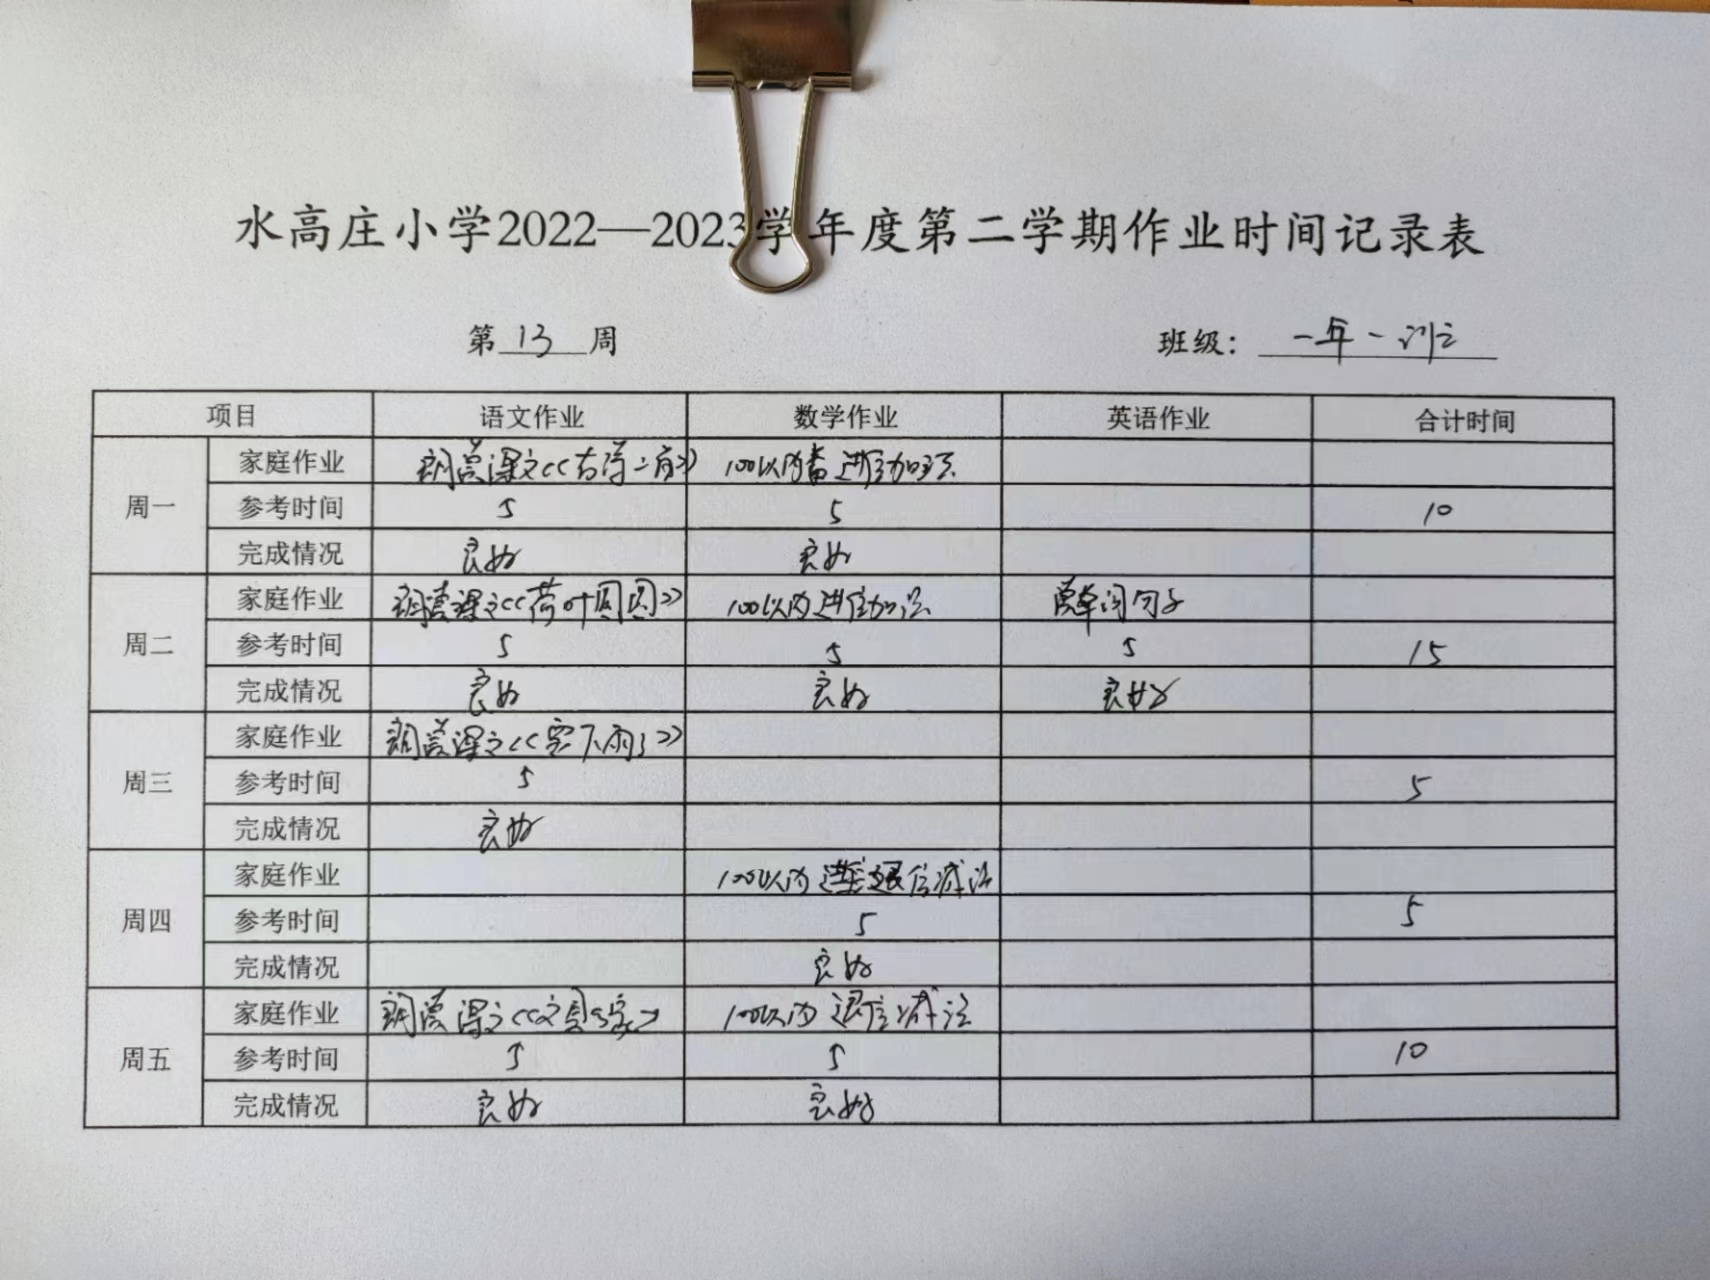 水高庄小学2022—2023学年度第二学期作业时间记录表
第 13 周 班级： 一年一班
项目 语文作业 数学作业 英语作业 合计时间
周一 家庭作业 朗读课文《古诗二首》 100以内 进位加法
参考时间 5 5 10
完成情况 良好 良好
周二 家庭作业 朗读课文《荷叶圆圆》 100以内进位加法 读单词句子
参考时间 5 5 5 15
完成情况 良好 良好 良好
周三 家庭作业 朗读课文《要下雨了》
参考时间 5 5
完成情况 良好
周四 家庭作业 100以内 退位减法
参考时间 5 5
完成情况 良好
周五 家庭作业 朗读课文《文具的家》 100以内 退位减法
参考时间 5 5 10
完成情况 良好 良好